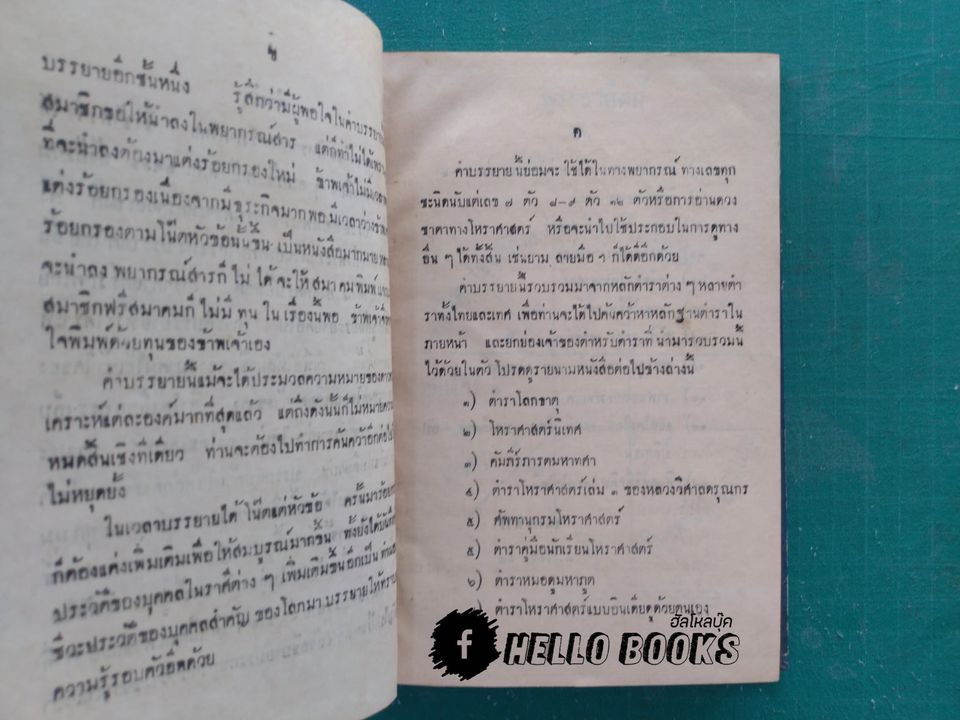 ข
บรรยายอีกชั้นหนึ่ง รู้สึกว่ามีผู้พอใจในคำบรรยาย
สมาชิกขอให้นำลงในพยากรณ์สาร แต่ก็ทำไม่ได้เพราะ
ที่จะนำลงต้องมาแต่งร้อยกรองใหม่ ข้าพเจ้าไม่มีเวลา
แต่งร้อยกรองเนื่องจากมีธุระกิจมาก พอมีเวลาว่าง
ร้อยกรองตามโน๊ตหัวข้อนั้นขึ้น เป็นหนังสือมากมาย
จะนำลง พยากรณ์สารก็ ไม่ ได้ จะให้ สมาคม พิมพ์
สมาชิกฟรีสมาคมก็ ไม่มี ทุน ใน เรื่องนี้พอ ข้าพเจ้าจึง
ใจพิมพ์ด้วยทุนของข้าพเจ้าเอง
คำบรรยายนี้แม้จะได้ประมวลความหมายของดาว
เคราะห์แต่ละองค์มากที่สุดแล้ว แต่ถึงดังนั้นก็ไม่หมายความ
หมดสิ้นเชิงทีเดียว ท่านจะต้องไปทำการค้นคว้าอีกต่อไป
ไม่หยุดยั้ง
ในเวลาบรรยายได้ โน๊ตแต่หัวข้อ ครั้นมาร้อย
ก็ต้องแต่งเพิ่มเติมเพื่อให้สมบูรณ์มากขึ้น ทั้งยังได้บันทึก
ประวัติของบุคคลในราศีต่าง ๆ เพิ่มเติมขึ้นอีกเป็น
ชีวะประวัติของบุคคลสำคัญ ของโลกมา บรรยายให้ทราบ
ความรู้รอบตัวอีกด้วย
ค
คำบรรยาย นี้ย่อมจะ ใช้ได้ในทางพยากรณ์ ทางเลขทุก
ชะนิดนับแต่เลข ๗ ตัว ๘-๙ ตัว ๑๒ ตัวหรือการอ่านดวง
ชาตาทางโหราศาสตร์ หรือจะนำไปใช้ประกอบในการดูทาง
อื่น ๆ ได้ทั้งสิ้น เช่นยาม ลายมือ ฯ ก็ได้ดีอีกด้วย
คำบรรยายนี้รวบรวมมาจากหลักตำราต่าง ๆ หลายตำ
ราทั้งไทยและเทศ เพื่อท่านจะได้ไปค้นคว้าหาหลักฐานตำราใน
ภายหน้า และยกย่องเจ้าของตำหรับตำราที่ นำมารวบรวมนี้
ไว้ด้วยในตัว โปรดดูรายนามหนังสือต่อไปข้างล่างนี้
๑) ตำราโลกธาตุ
๒) โหราศาสตร์นิเทศ
๓) คัมภีร์ภารตมหาทศา
๔) ตำราโหราศาสตร์เล่ม ๓ ของหลวงวิศาลดรุณกร
๕) ศัพทานุกรมโหราศาสตร์
๕) ตำราคู่มือนักเรียนโหราศาสตร์
๖) ตำราหมอดูมหาภูต
) ตำราโหราศาสตร์แบบอินเดียดูด้วยตนเอง
ฮัลโหลบุ๊ค
f HELLO BOOKS